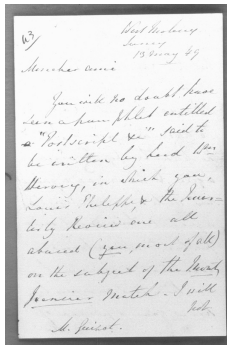 43
West Horsley
Surrey
13 May 49
Mon cher ami
You will no doubt have
seen a pamphlet entitled
a "Postscript &c" said to
be written by Lord Wm
Hervey, in which you,
Louis Philippe & the
are all
abused (you, most of all)
on the subject of the Montp
Match. I will
not
M. Guizot.